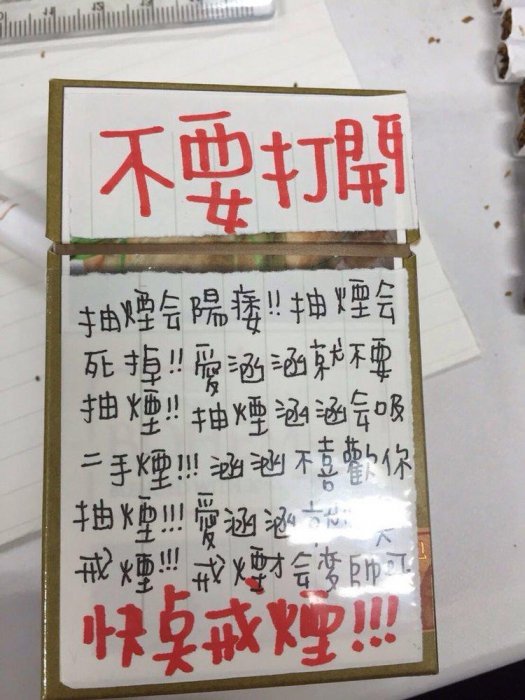 不要打開
抽煙会陽痿!! 抽煙会
死掉!! 愛涵涵就不要
抽煙!! 抽煙涵涵会吸
二手煙!!! 涵涵不喜歡你
抽煙!!! 愛涵涵
戒煙!!! 戒煙才会變帥
快点戒煙!!!